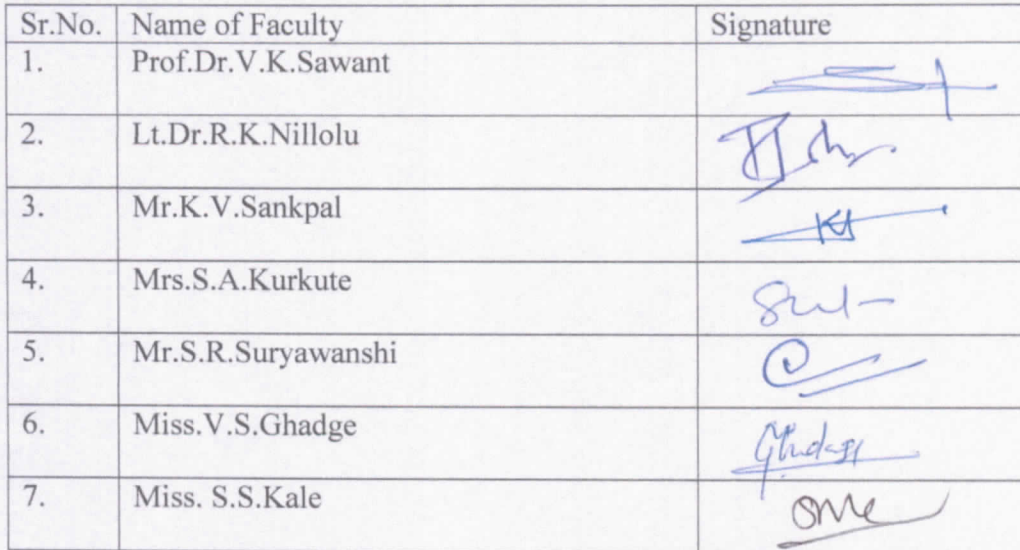 Sr.No. Name of Faculty Signature
1. Prof.Dr.V.K.Sawant
2. Lt.Dr.R.K.Nillolu
3. Mr.K.V.Sankpal
4. Mrs.S.A.Kurkute
5. Mr.S.R.Suryawanshi
6. Miss.V.S.Ghadge
7. Miss. S.S.Kale